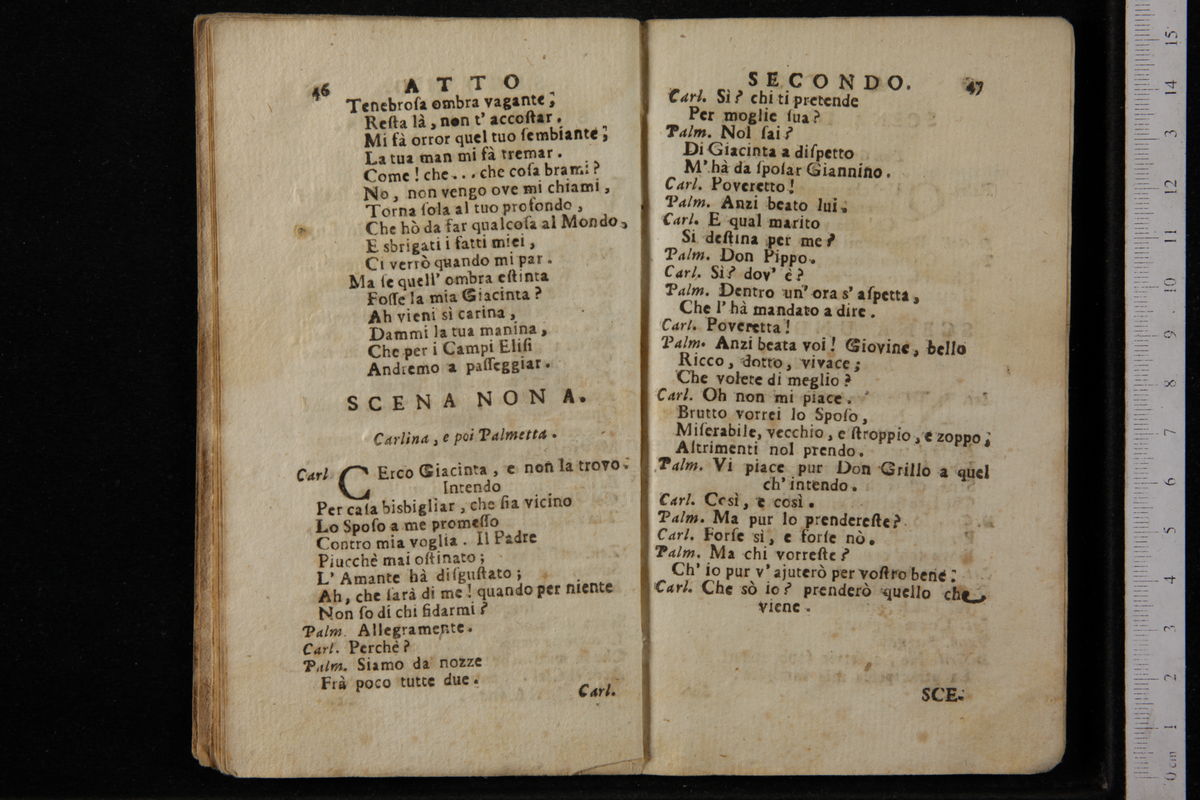 46 ATTO
Tenebroſa ombra vagante;
Reſta là, non t' accoſtar.
Mi fà orror quel tuo ſembiante;
La tua man mi fà tremar.
Come! che... che coſa brami?
No, non vengo ove mi chiami,
Torna ſola al tuo profondo,
Che hò da far qualcoſa al Mondo,
E sbrigati i fatti miei,
Ci verrò quando mi par.
Ma ſe quell' ombra eſtinta
Foſſe la mia Giacinta?
Ah vieni sì carina,
Dammi la tua manina,
Che per i Campi Eliſi
Andremo a paſſeggiar.
SCENA NONA.
Carlina, e poi Palmetta.
Carl. CErco Giacinta, e non la trovo.
Intendo
Per caſa bisbigliar, che ſia vicino
Lo Spoſo a me promeſſo
Contro mia voglia. Il Padre
Piucchè mai oſtinato;
L' Amante hà diſguſtato;
Ah, che ſarà di me! quando per niente
Non ſo di chi fidarmi?
Palm. Allegramente.
Carl. Perchè?
Palm. Siamo da nozze
Frà poco tutte due.
Carl.
SECONDO. 47
Carl. Sì? chi ti pretende
Per moglie ſua?
Palm. Nol ſai?
Di Giacinta a diſpetto
M' hà da ſpoſar Giannino.
Carl. Poveretto!
Palm. Anzi beato lui.
Carl. E qual marito
Si deſtina per me?
Palm. Don Pippo.
Carl. Sì? dov' è?
Palm. Dentro un' ora s' aſpetta,
Che l' hà mandato a dire.
Carl. Poveretta!
Palm. Anzi beata voi! Giovine, bello
Ricco, dotto, vivace;
Che volete di meglio?
Carl. Oh non mi piace.
Brutto vorrei lo Spoſo,
Miſerabile, vecchio, e ſtroppio, e zoppo;
Altrimenti nol prendo.
Palm. Vi piace pur Don Grillo a quel
ch' intendo.
Carl. Così, e così.
Palm. Ma pur lo prendereſte?
Carl. Forſe sì, e forſe nò.
Palm. Ma chi vorreſte?
Ch' io pur v' ajuterò per voſtro bene.
Carl. Che sò io? prenderò quello che
viene.
SCE-
0 cm 1 2 3 4 5 6 7 8 9 10 11 12 13 14 15